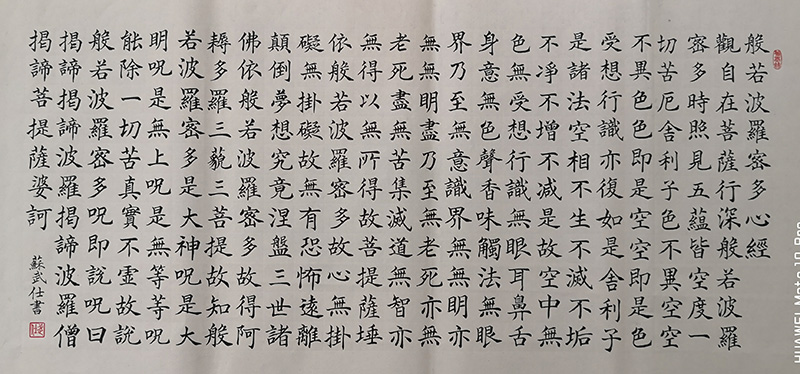 般若波羅密多心經
觀自在菩薩行深般若波羅
密多時照見五蘊皆空度一
切苦厄舍利子色不異空空
不異色色即是空空即是色
受想行識亦復如是舍利子
是諸法空相不生不滅不垢
不凈不增不减是故空中無
色無受想行識無眼耳鼻舌
身意無色聲香味觸法無眼
界乃至無意識界無無明亦
無無明盡乃至無老死亦無
老死盡無苦集滅道無智亦
無得以無所得故菩提薩埵
依般若波羅密多故心無掛
礙無掛礙故無有恐怖遠離
顛倒夢想究竟涅盤三世諸
佛依般若波羅密多故得阿
耨多羅三藐三菩提故知般
若波羅密多是大神呪是大
明呪是無上呪是無等等呪
能除一切苦真實不虛故說
般若波羅密多呪即說呪曰
揭諦揭諦波羅揭諦波羅僧
揭諦菩提薩婆訶
蘇武仕書
HUAWEI Mate 10 Pro